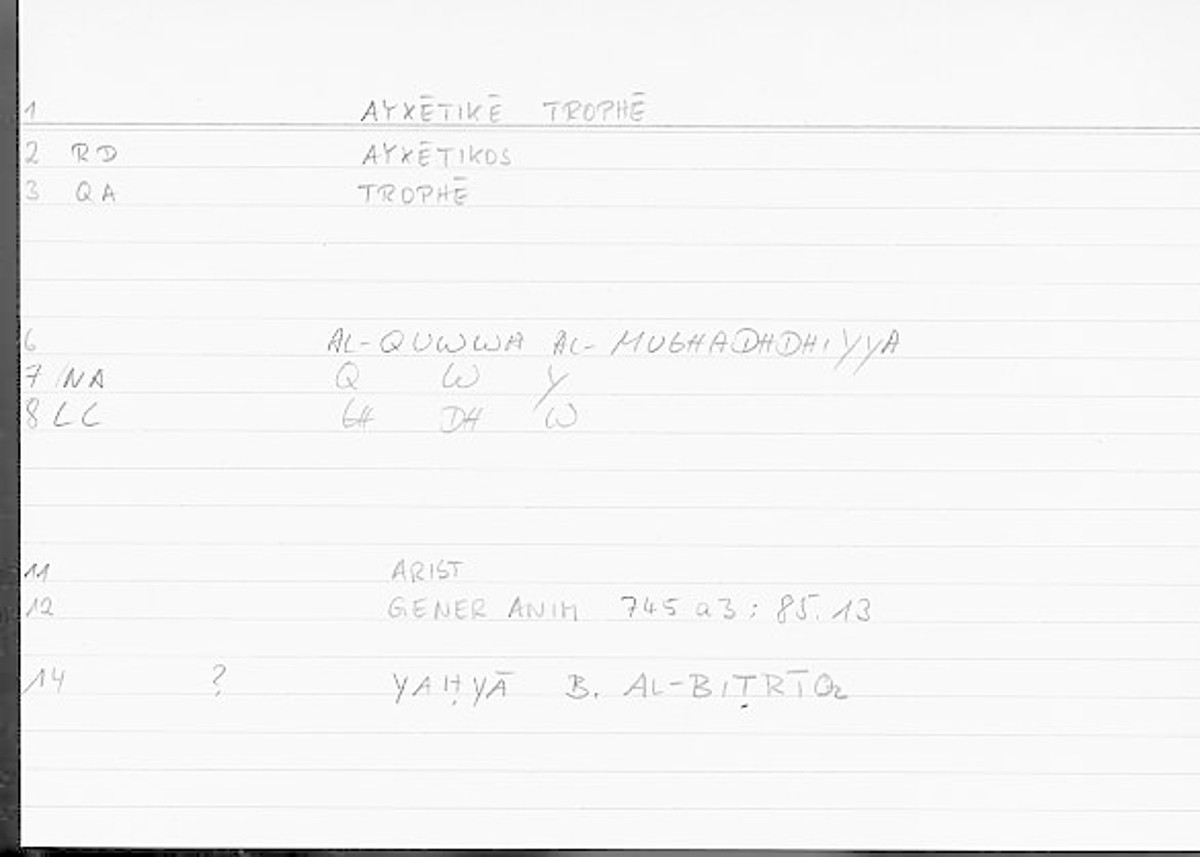 1 AYXĒTIKĒ TROPHĒ
2 RD AYXĒTIKOS
3 QA TROPHĒ
6 AL-QUWWA AL-MUGHADHDHIYYA
7 NA Q W Y
8 LC GH DH W
11 ARIST
12 GENER ANIM 745 a3 : 85.13
14 ? YAḤYĀ B. AL-BIṬRĪQ